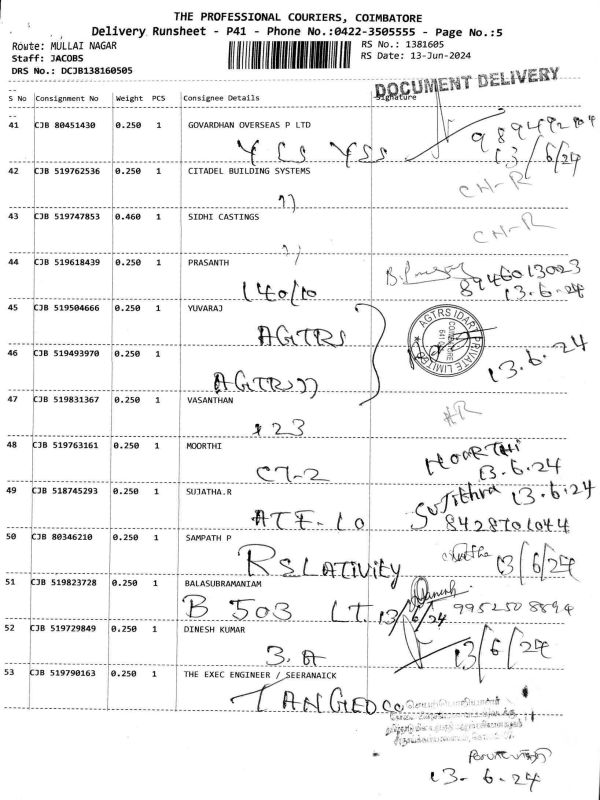 THE PROFESSIONAL COURIERS, COIMBATORE
Delivery Runsheet - P41 - Phone No.:0422-3505555 - Page No.:5
Route: MULLAI NAGAR
RS No.: 1381605
Staff: JACOBS
RS Date: 13-Jun-2024
DRS No.: DCJB138160505
DOCUMENT DELIVERY
S No Consignment No Weight PCS Consignee Details Signature
41 CJB 80451430 0.250 1 GOVARDHAN OVERSEAS P LTD
13/6/24
42 CJB 519762536 0.250 1 CITADEL BUILDING SYSTEMS
CN-R
43 CJB 519747853 0.460 1 SIDHI CASTINGS
CN-R
44 CJB 519618439 0.250 1 PRASANTH
140/10 8946013023
13.6.24
45 CJB 519504666 0.250 1 YUVARAJ
AGTRS
AGTRS IDART PRIVATE LIMITED
COIMBATORE
46 CJB 519493970 0.250 1
13.6.24
AGTRS
47 CJB 519831367 0.250 1 VASANTHAN
123
48 CJB 519763161 0.250 1 MOORTHI
MOORTHI
CT-2 13.6.24
49 CJB 518745293 0.250 1 SUJATHA.R
Sujithra 13.6.24
ATF-10 8428701044
50 CJB 80346210 0.250 1 SAMPATH P
RSLATIVITY 13/6/24
51 CJB 519823728 0.250 1 BALASUBRAMANIAM
B 503 LT. 13/6/24 9952508894
52 CJB 519729849 0.250 1 DINESH KUMAR
3.A 13/6/24
53 CJB 519790163 0.250 1 THE EXEC ENGINEER / SEERANAICK
TANGEDCO
13.6.24